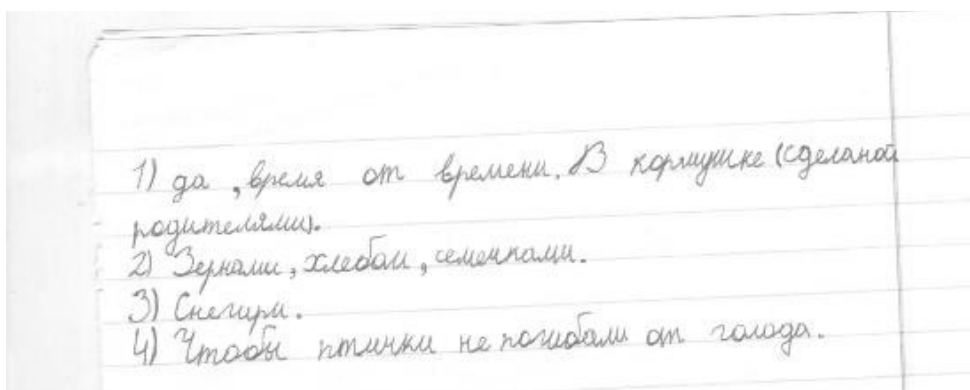 1) да, время от времени. В кормушке (сделаной
родителями).
2) Зернами, хлебом, семечками.
3) Снегири.
4) Чтобы птички не погибали от голода.